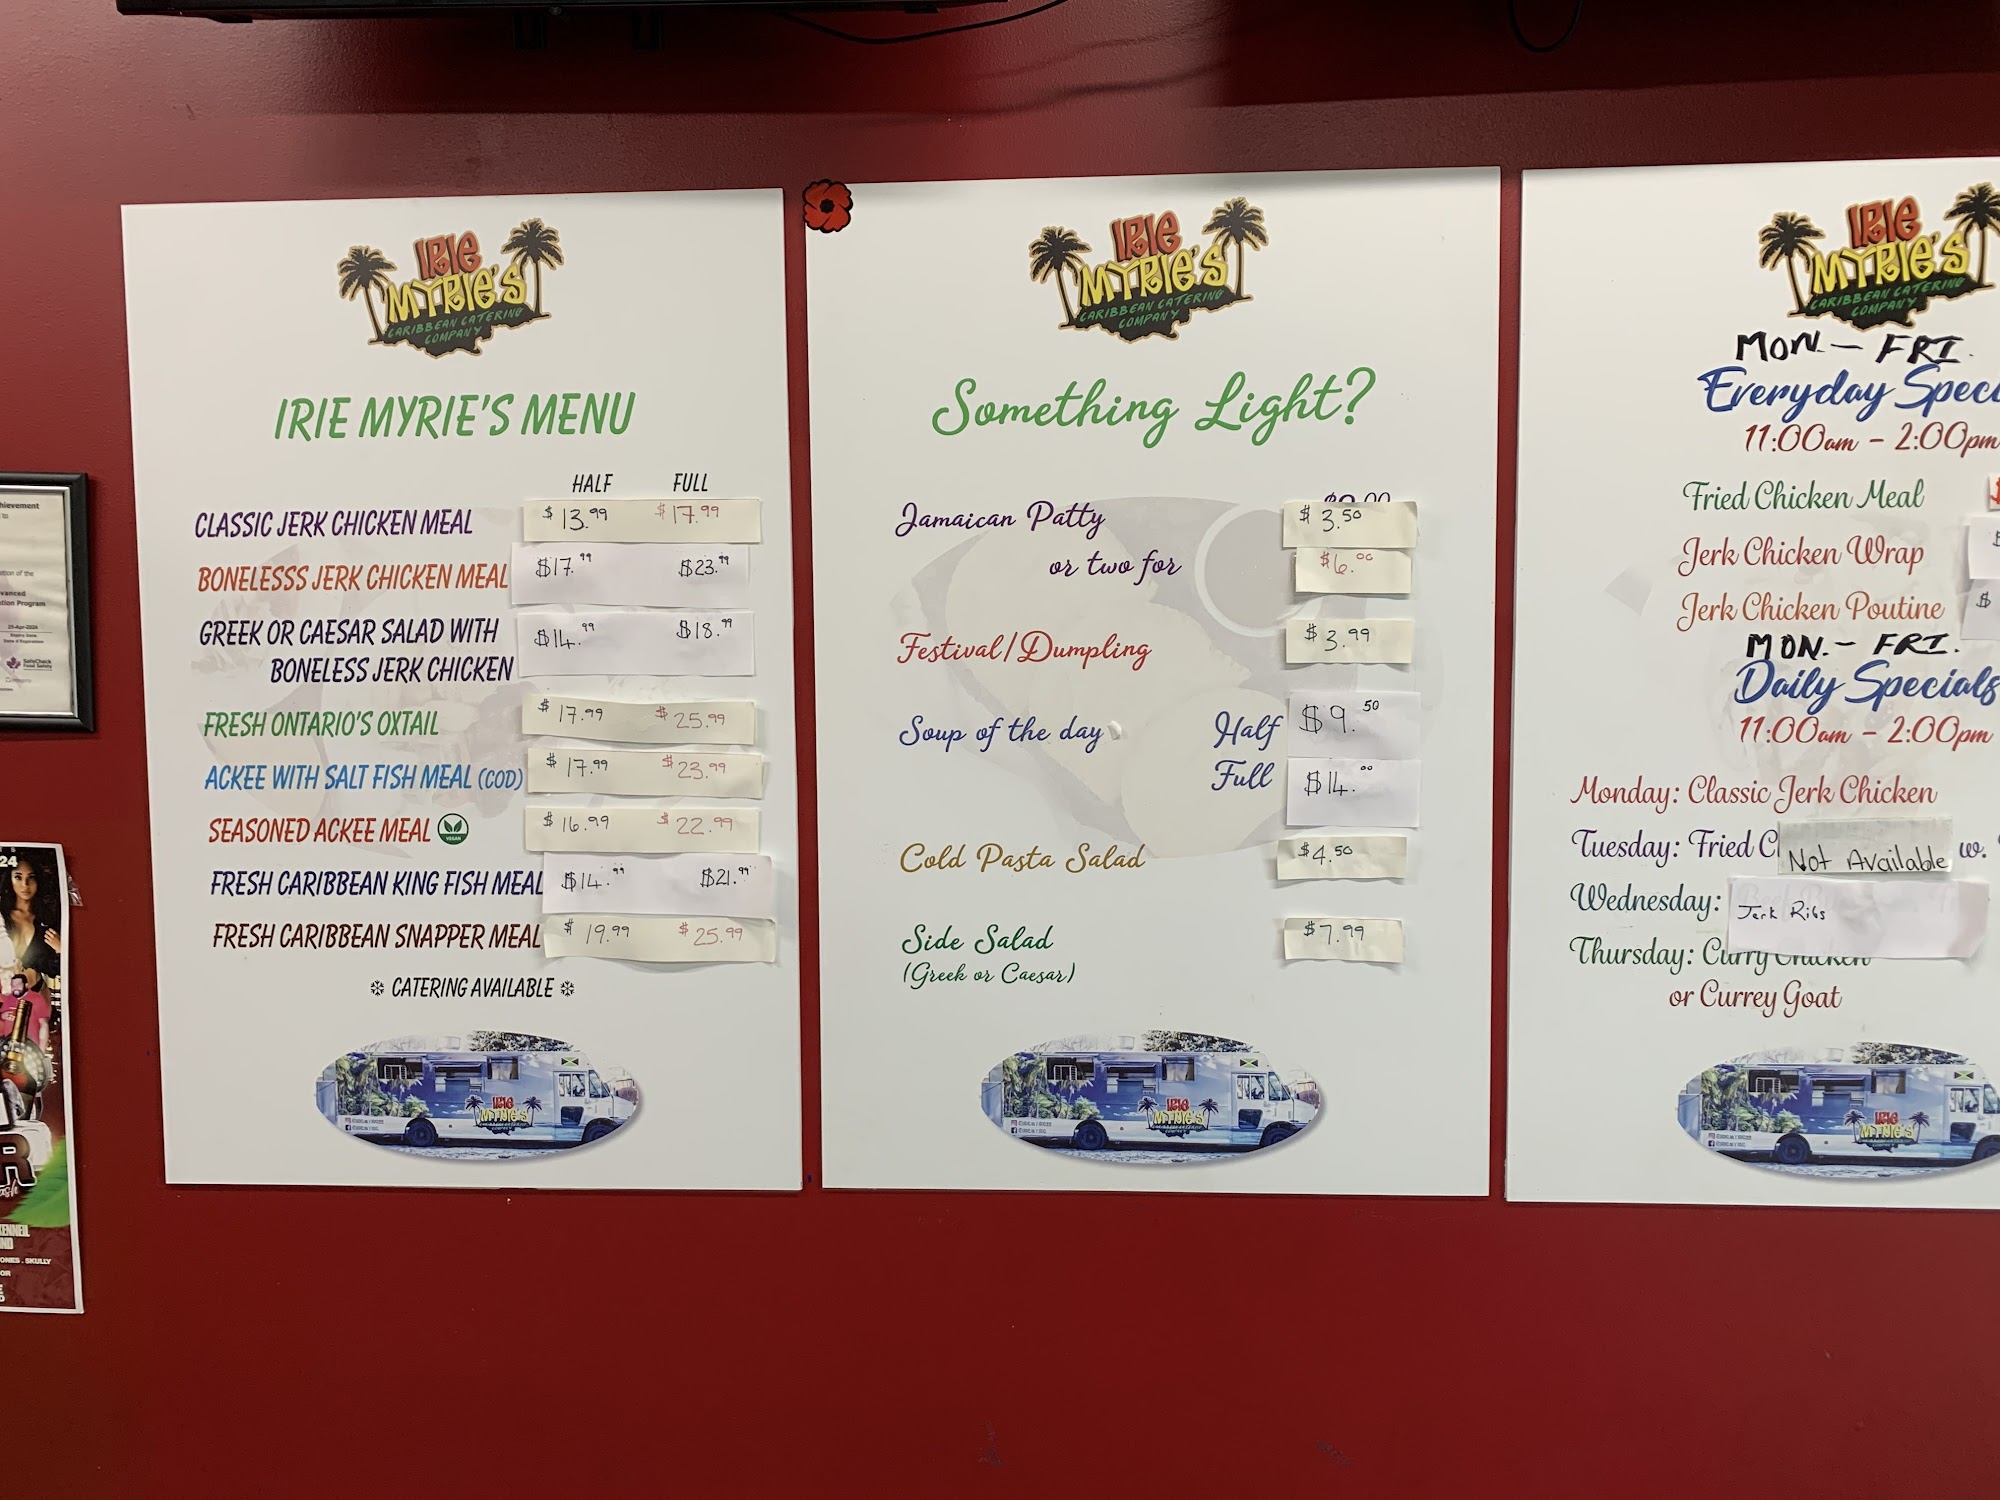 IRIE
MYRIE'S
CARIBBEAN CATERING
COMPANY
IRIE MYRIE'S MENU
HALF FULL
CLASSIC JERK CHICKEN MEAL $13.99 $17.99
BONELESSS JERK CHICKEN MEAL $17.99 $23.99
GREEK OR CAESAR SALAD WITH $14.99 $18.99
BONELESS JERK CHICKEN
FRESH ONTARIO'S OXTAIL $17.99 $25.99
ACKEE WITH SALT FISH MEAL (COD) $17.99 $23.99
SEASONED ACKEE MEAL VEGAN $16.99 $22.99
FRESH CARIBBEAN KING FISH MEAL $14.99 $21.99
FRESH CARIBBEAN SNAPPER MEAL $19.99 $25.99
CATERING AVAILABLE
IRIE
MYRIE'S
IRIE
MYRIE'S
CARIBBEAN CATERING
COMPANY
Something Light?
Jamaican Patty $3.50
or two for $6.00
Festival/Dumpling $3.99
Soup of the day Half $9.50
Full $14.00
Cold Pasta Salad $4.50
Side Salad $7.99
(Greek or Caesar)
IRIE
MYRIE'S
IRIE
MYRIE'S
CARIBBEAN CATERING
COMPANY
MON. - FRI.
Everyday Speci
11:00am - 2:00pm
Fried Chicken Meal
Jerk Chicken Wrap
Jerk Chicken Poutine $
MON. - FRI.
Daily Specials
11:00am - 2:00pm
Monday: Classic Jerk Chicken
Tuesday: Fried C Not Available w.
Wednesday: Jerk Ribs
Thursday: Curry Chicken
or Currey Goat
IRIE
MYRIE'S
hievement
vanced
tion Program
25-Apr-2024
24
R
ONES . SKULLY